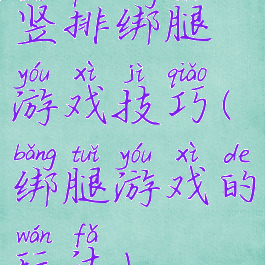 竖排绑腿
yóu xì jì qiǎo
游戏技巧(
bǎng tuǐ yóu xì de
绑腿游戏的
wán fǎ
玩法)